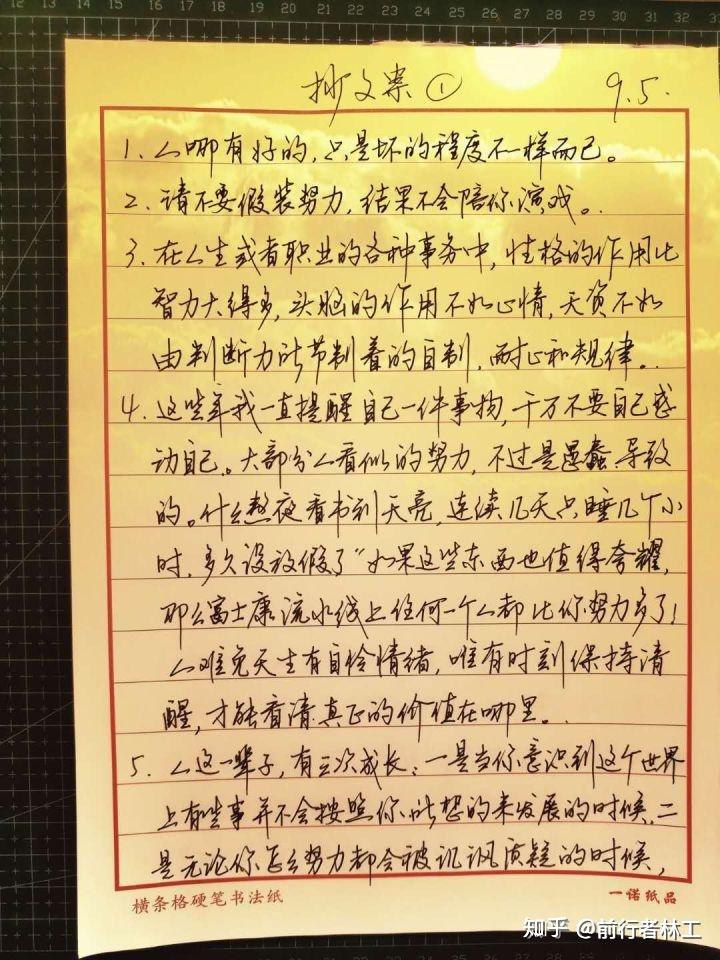 抄文案① 9.5.
1、人哪有好的，只是坏的程度不一样而已。
2、请不要假装努力，结果不会陪你演戏。
3、在人生或者职业的各种事务中，性格的作用比
智力大得多，头脑的作用不如心情，天资不如
由判断力所节制着的自制，耐心和规律。
4、这些年我一直提醒自己一件事物，千万不要自己感
动自己。大部分人看似的努力，不过是愚蠢导致
的。什么熬夜看书到天亮，连续几天只睡几个小
时，多久没放假了"如果这些东西也值得夸耀，
那么富士康流水线上任何一个人都比你努力多了！
人难免天生有自怜情绪，唯有时刻保持清
醒，才能看清真正的价值在哪里。
5、人这一辈子，有三次成长：一是当你意识到这个世界
上有些事并不会按照你所想的来发展的时候，二
是无论你怎么努力都会被讥讽质疑的时候，
横条格硬笔书法纸 一诺纸品
知乎 @前行者林工